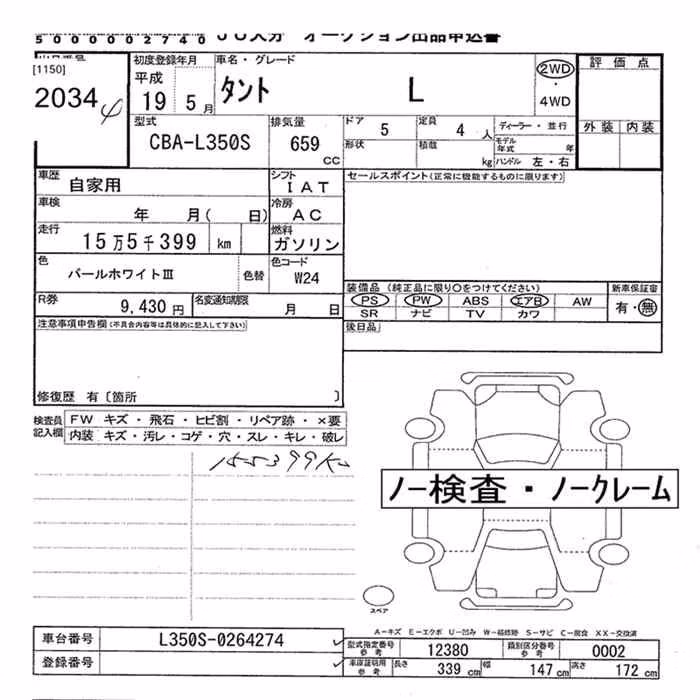 5000002740 JU大分 オークション出品申込書
[1150]
2034
初度登録年月
平成
19 5月
車名・グレード
タント L
2WD
・
4WD
評価点
外装 内装
型式
CBA-L350S
排気量
659
CC
ドア
5
定員
4 人
形状
積載
kg
ディーラー・並行
モデル年式 年
ハンドル 左・右
車歴
自家用
シフト
IAT
車検
年 月( 日)
冷房
AC
走行
15万5千399 km
燃料
ガソリン
色
パールホワイトⅢ
色替
色コード
W24
R券
9,430円
名変通知期限
月 日
セールスポイント(正常に機能するものに限ります)
装備品 (純正品に限り○をつけてください)
PS PW ABS エアB AW
SR ナビ TV カワ
新車保証書
有・無
後日品
注意事項申告欄(不具合内容等は具体的に記入して下さい)
修復歴 有〔箇所 〕
検査員記入欄
FW キズ・飛石・ヒビ割・リペア跡・×要
内装 キズ・汚レ・コゲ・穴・スレ・キレ・破レ
155399K
ノー検査・ノークレーム
スペア
A-キズ E-エクボ U-凹み W-補修跡 S-サビ C-腐食 XX-交換済
車台番号
L350S-0264274
登録番号
型式指定番号
参考
12380
類別区分番号
参考
0002
車庫証明用
参考
長さ 339 cm 幅 147 cm 高さ 172 cm